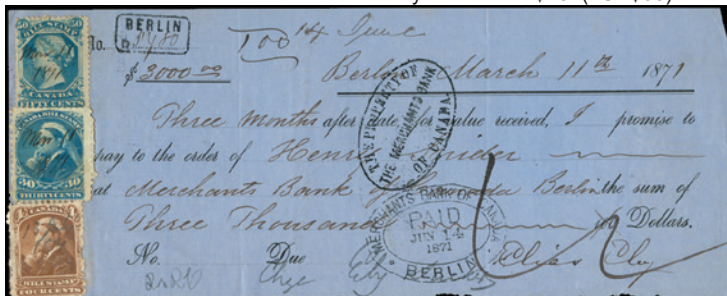 BERLIN
No. 100 14 June
$ 3000 00 Berlin March 11th 1871
Three months after date for value received, I promise to
pay to the order of Henry Snider
at Merchants Bank of Canada Berlin the sum of
Three Thousand Dollars.
No. Due
THE PROPERTY OF
THE MERCHANTS BANK
OF CANADA.
MERCHANTS BANK OF CANADA
PAID
JUN 14
1871
BERLIN
50 BILL STAMP 50
CANADA
FIFTY CENTS
CANADA BILL STAMP
30 30
THIRTY CENTS
4 CANADA 4
BILL STAMP
FOUR CENTS